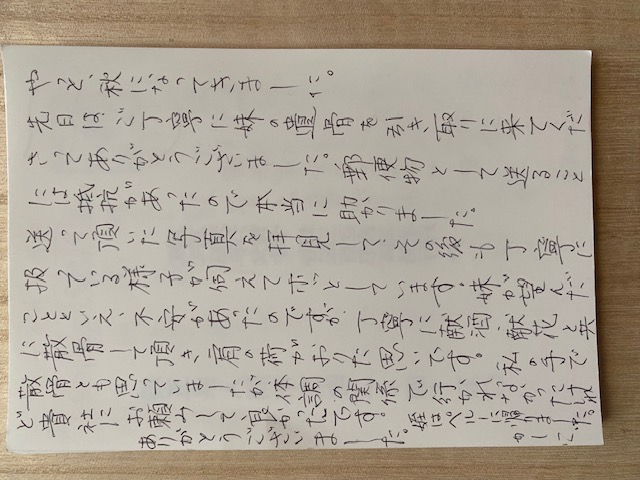 やっと、秋になってきました。
先日はご丁寧に妹の遺骨を引き取りに来てくだ
さってありがとうございました。郵便物として送ること
には抵抗があったので本当に助かりました。
送って頂いた写真を拝見して、その後も丁寧に
扱っている様子が伺えてホッとしています。妹が望んだ
ことといえ、不安があったのですが、丁寧に献酒、献花と共
に散骨して頂き、肩の荷がおりた思いです。私の手で
散骨とも思っていましたが体調の関係で行かれなかったけれ
ど貴社にお頼みして良かったです。姪はペルーに帰りました。
ありがとうございました。かしこ